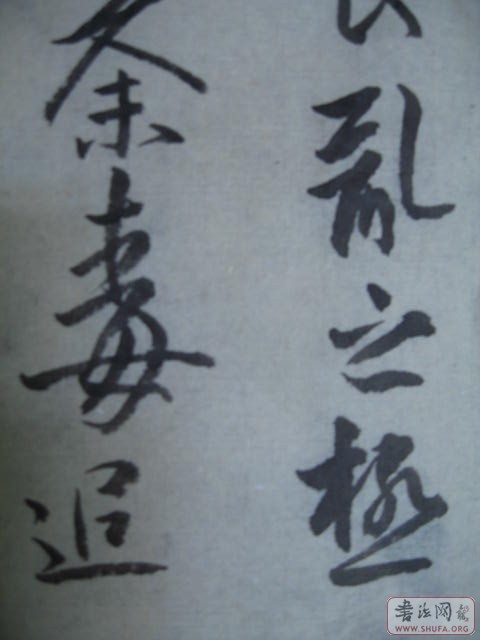 亂之極
荼毒追
書法网
WWW.SHUFA.ORG